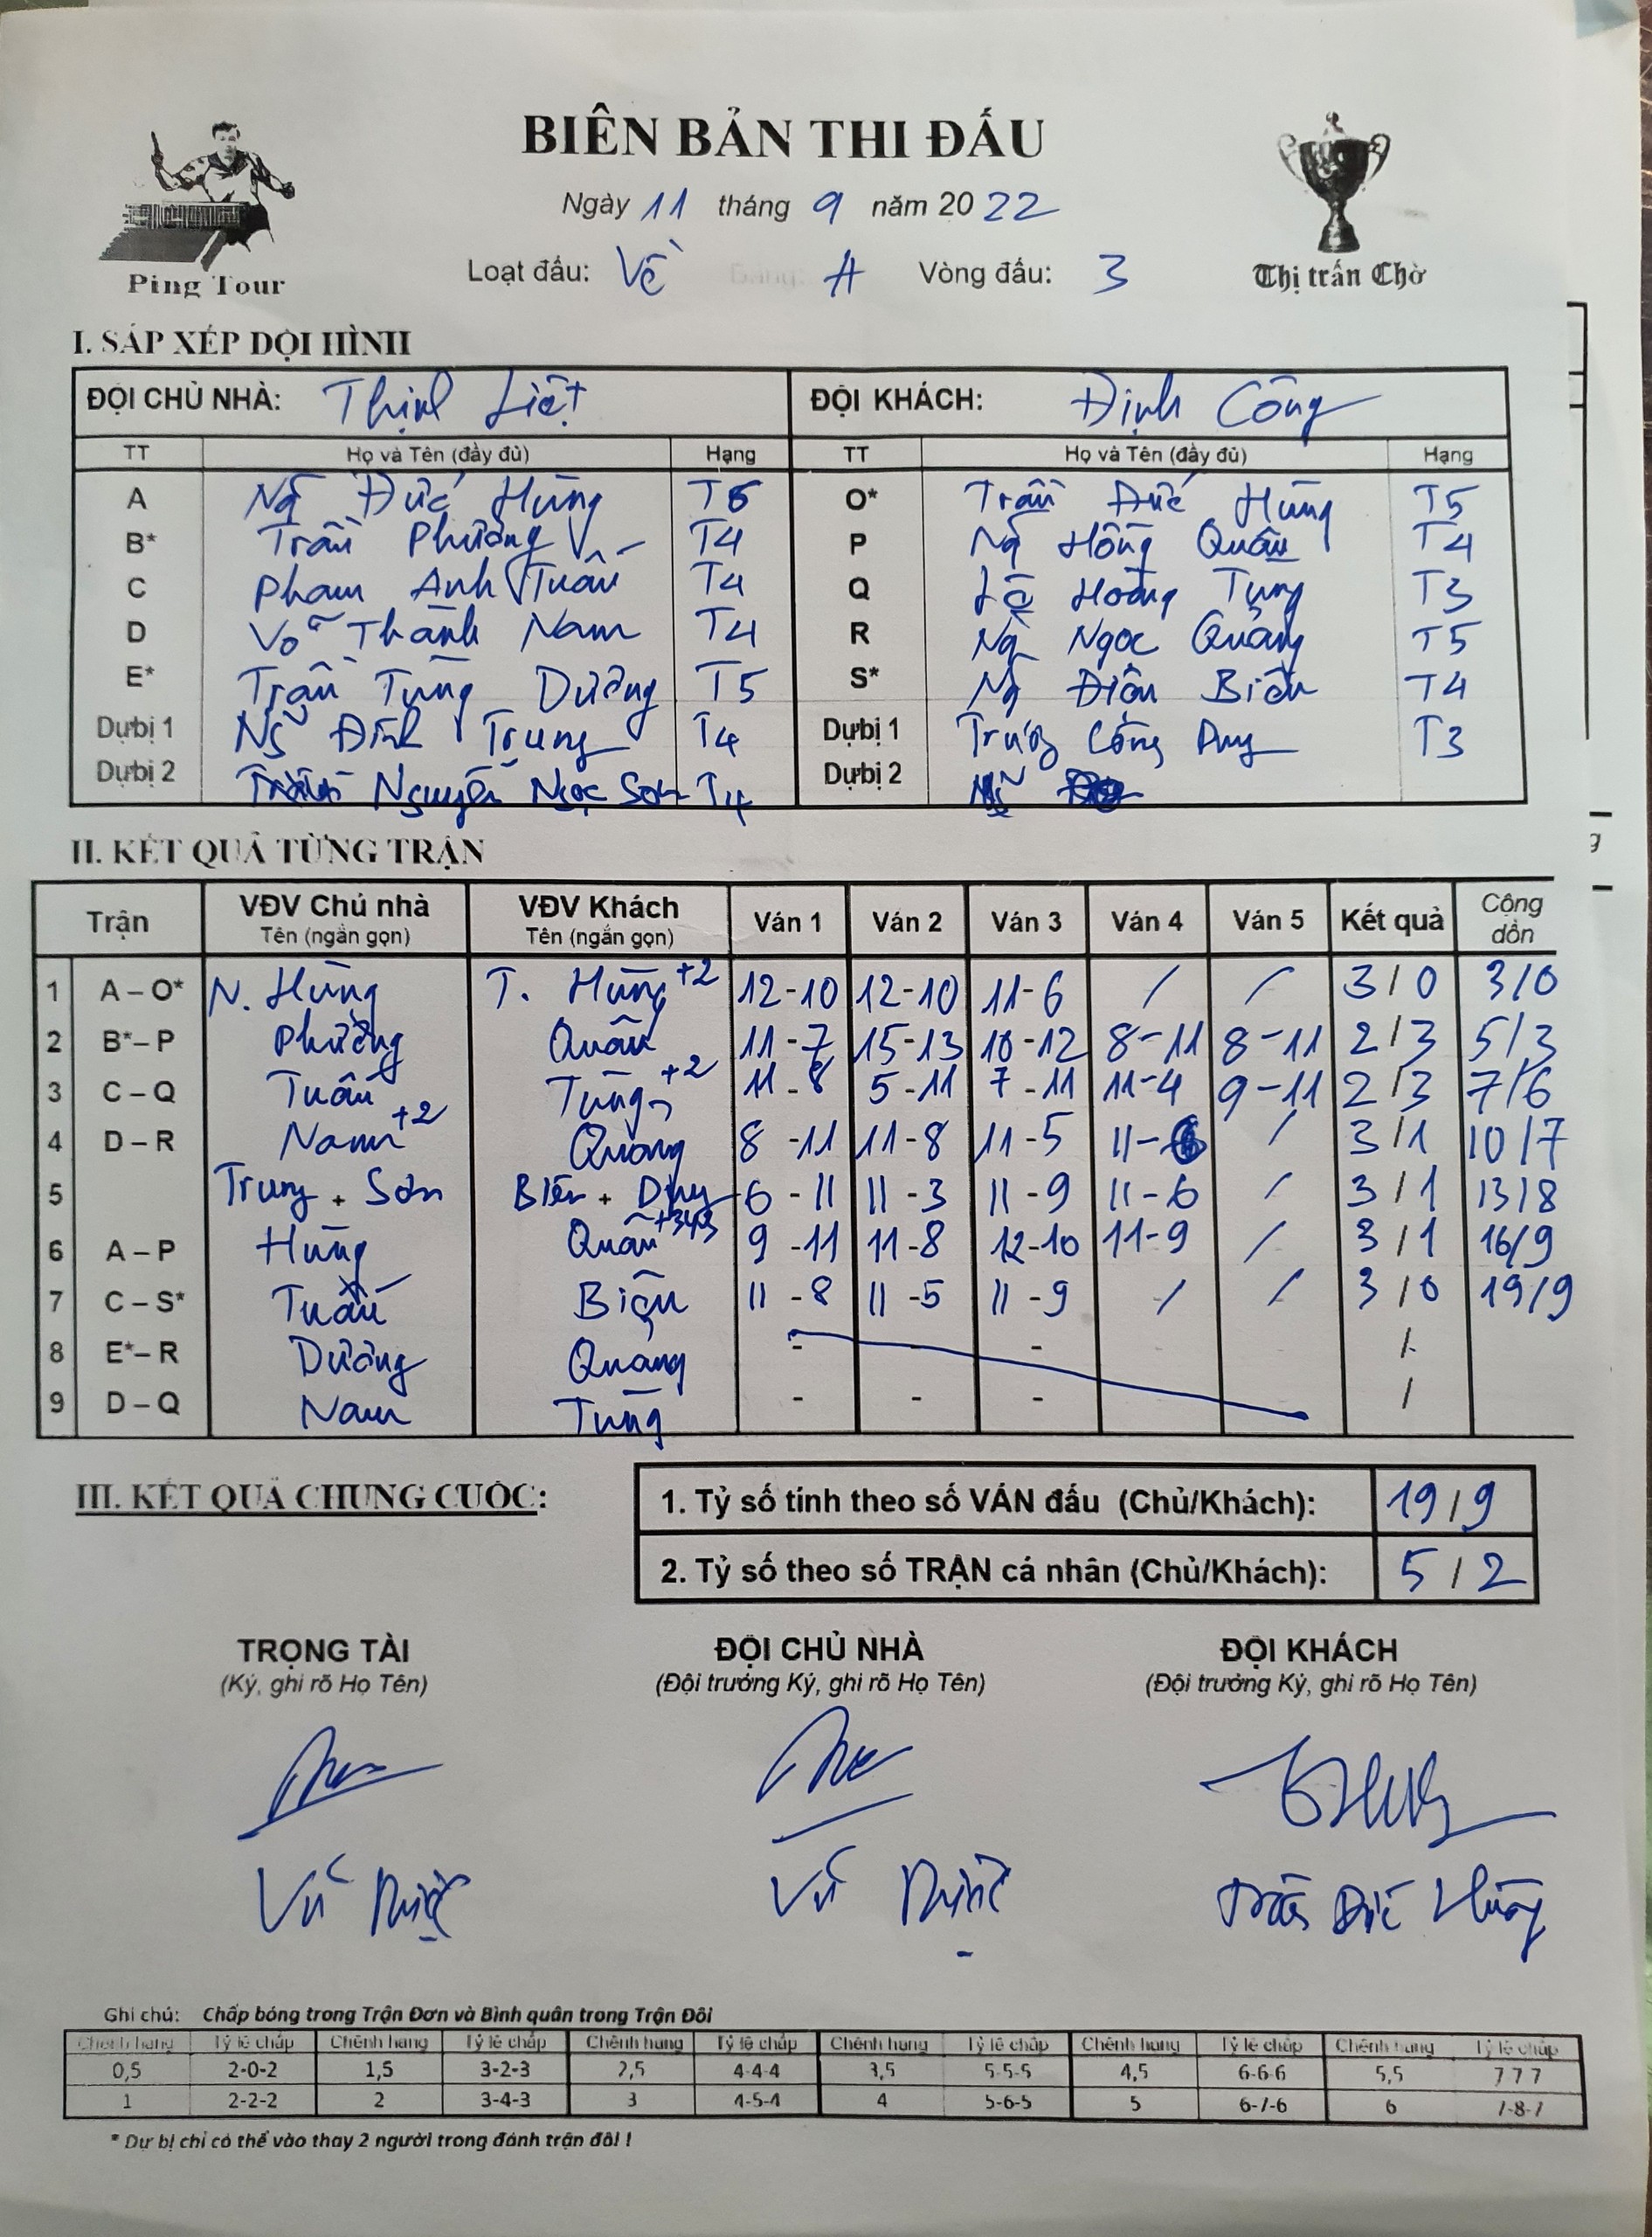 BIÊN BẢN THI ĐẤU
Ngày 11 tháng 9 năm 2022
Ping Tour
Loạt đấu: Về Bảng: A Vòng đấu: 3
Thị trấn Chờ
I. SẮP XẾP ĐỘI HÌNH
ĐỘI CHỦ NHÀ: Thịnh Liệt ĐỘI KHÁCH: Định Công
TT Họ và Tên (đầy đủ) Hạng TT Họ và Tên (đầy đủ) Hạng
A Ng Đức Hùng T5 O* Trần Đức Hùng T5
B* Trần Phương T4 P Ng Hồng Quân T4
C Phạm Anh Tuấn T4 Q Lê Hoàng Tùng T3
D Võ Thành Nam T4 R Ng Ngọc Quảng T5
E* Trần Tùng Dương T5 S* Ng Điện Biên T4
Dự bị 1 Ng Đình Trung T4 Dự bị 1 Trương Công Duy T3
Dự bị 2 Nguyễn Ngọc Sơn T4 Dự bị 2
II. KẾT QUẢ TỪNG TRẬN
Trận VĐV Chủ nhà Tên (ngắn gọn) VĐV Khách Tên (ngắn gọn) Ván 1 Ván 2 Ván 3 Ván 4 Ván 5 Kết quả Cộng dồn
1 A – O* N. Hùng T. Hùng +2 12-10 12-10 11-6 / / 3/0 3/0
2 B* – P Phương Quân 11-7 15-13 10-12 8-11 8-11 2/3 5/3
3 C – Q Tuấn Tùng +2 11-8 5-11 7-11 11-4 9-11 2/3 7/6
4 D – R Nam +2 Quảng 8-11 11-8 11-5 11-6 / 3/1 10/7
5 Trung + Sơn Biên + Duy 6-11 11-3 11-9 11-6 / 3/1 13/8
6 A – P Hùng Quân +343 9-11 11-8 12-10 11-9 / 3/1 16/9
7 C – S* Tuấn Biên 11-8 11-5 11-9 / / 3/0 19/9
8 E* – R Dương Quảng - - - /
9 D – Q Nam Tùng - - - /
III. KẾT QUẢ CHUNG CUỘC:
1. Tỷ số tính theo số VÁN đấu (Chủ/Khách): 19/9
2. Tỷ số theo số TRẬN cá nhân (Chủ/Khách): 5/2
TRỌNG TÀI ĐỘI CHỦ NHÀ ĐỘI KHÁCH
(Ký, ghi rõ Họ Tên) (Đội trưởng Ký, ghi rõ Họ Tên) (Đội trưởng Ký, ghi rõ Họ Tên)
Vũ Vũ Trần Đức Hùng
Ghi chú: Chấp bóng trong Trận Đơn và Bình quân trong Trận Đôi
Chênh hạng Tỷ lệ chấp Chênh hạng Tỷ lệ chấp Chênh hạng Tỷ lệ chấp Chênh hạng Tỷ lệ chấp Chênh hạng Tỷ lệ chấp Chênh hạng Tỷ lệ chấp
0,5 2-0-2 1,5 3-2-3 2,5 4-4-4 3,5 5-5-5 4,5 6-6-6 5,5 7 7 7
1 2-2-2 2 3-4-3 3 4-5-4 4 5-6-5 5 6-7-6 6 7-8-7
* Dự bị chỉ có thể vào thay 2 người trong đánh trận đôi !